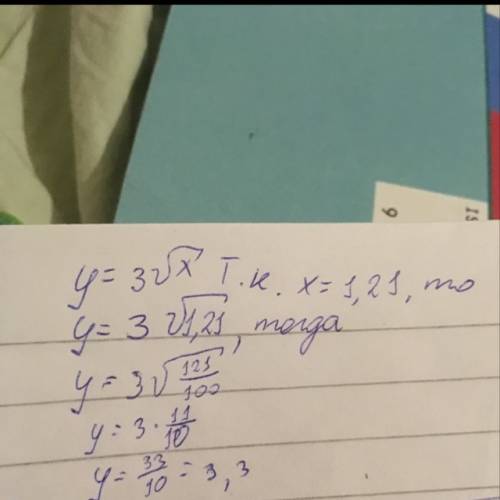 9
IS
y = 3√x Т.к. x = 1,21, то
y = 3 √1,21, тогда
y = 3√(121/100)
y = 3 · 11/10
y = 33/10 = 3,3